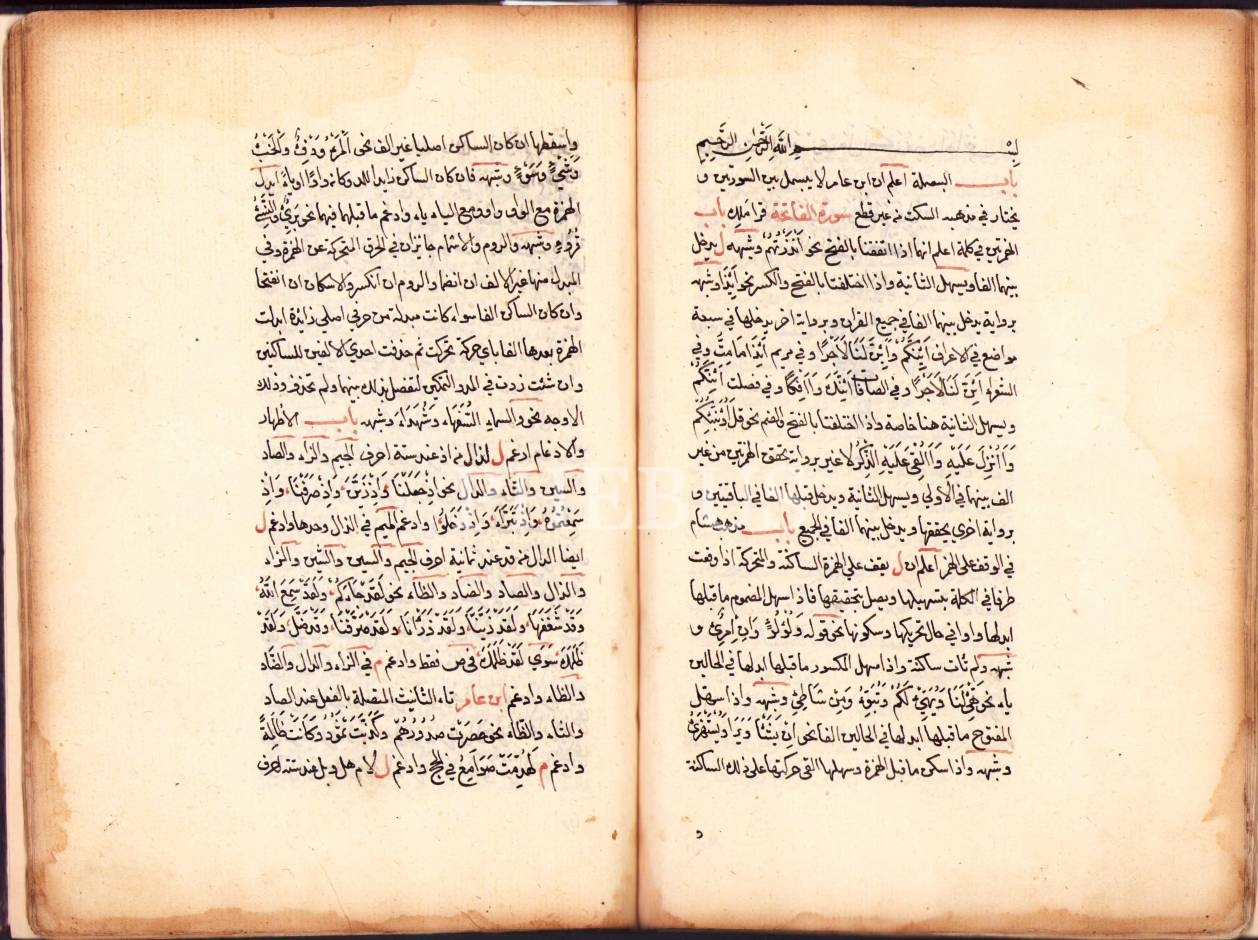 بسم الله الرحمن الرحيم
باب البسملة اعلم ان ابن عامر لا يبسمل بين السورتين و
يختار في مذهبه السكت من غير قطع سورة الفاتحة قرا ملك باب
الهمزتين في كلمة اعلم انهما اذا اتفقتا بالفتح نحو ءَاَنْذَرْتَهُمْ وشبهه ل يدخل
بينهما الفا ويسهل الثانية واذا اختلفتا بالفتح والكسر نحو اَئِذَا وشبهه
برواية يدخل بينهما الفا في جميع القران وبرواية اخر يدخلها في سبعة
مواضع في الاعراف اَئِنَّكُمْ وَاَئِنَّ لَنَا لَاَجْرًا وفي مريم اَئِذَا مَا مِتُّ وفي
الشعراء اَئِنَّ لَنَا لَاَجْرًا وفي الصافات اَئِنَّكَ وَاَئِفْكًا وفي فصلت اَئِنَّكُمْ
ويسهل الثانية هنا خاصة واذا اختلفتا بالفتح والضم نحو قل اَؤُنَبِّئُكُمْ
وَاَاُنْزِلَ عَلَيْهِ وَاَاُلْقِىَ عَلَيْهِ الذِّكْرُ لا غير برواية يحقق الهمزتين من غير
الف بينهما في الاولي ويسهل الثانية ويدخل قبلها الفا في الباقيتين و
برواية اخري يحققها ويدخل بينهما الفا في الجميع باب مذهب هشام
في الوقف علي الهمز اعلم ان ل يقف علي الهمزة الساكنة والمتحركة اذا وقعت
طرفا في الكلمة بتسهيلها ويصل بتحقيقها فاذا سهل المضموم ما قبلها
ابدلها واوا في حال تحريكها وسكونها نحو قوله وَلُؤْلُؤٌ وَاِنِ امْرُؤٌ و
شبهه ولم تات ساكنة واذا سهل المكسور ما قبلها ابدلها في الحالين
ياء نحو هَيِّئْ لَنَا وَيُهَيِّئْ لَكُمْ وَتُبَوِّئُ وَمِنْ شَاطِئِ وشبهه واذا سهل
المفتوح ما قبلها ابدلها في الحالين الفا نحو اِنْ يَشَأْ وَيَدْرَأُ وَيُسْتَهْزَئُ
وشبهه واذا سكن ما قبل الهمزة وسهلها القى حركتها على ذلك الساكنة
واسقطها ان كان الساكن اصليا غير الف نحو اَلْمَرْءِ وَدِفْءٌ وَالْخَبْءَ
وَشَيْءٍ وَسَوْءٍ وشبهه فان كان الساكن زايدا للمد وكان واوا او ياء ابدل
الهمزة مع الواو واوا ومع الياء ياء وادغم ما قبلها فيهما نحو بَرِئٌ وَالنَّسِئُ
قُرُوءٍ وشبهه والروم والاشمام جايزان في الحرف المتحركة عن الهمزة وفي
المبدل منها غير الالف ان انضما والروم ان انكسر والاسكان ان انفتحا
وان كان الساكن الفا سواء كانت مبدلة من حرف اصلي زايدة ابدلت
الهمزة بعدها الفا باي حركة تحركت ثم حذفت احدي الالفين للساكنين
وان شئت زدت في المد والتمكين لتفصل بذلك بينهما ولم تحذف وذلك
الاوجه نحو والسماءِ السُّفَهَاءُ وَشُهَدَاءَ وشبهه باب الاظهار
والادغام ادغم ل الذال من اذ عند ستة احرف الجيم والزاء والصاد
والسين والتاء والدال نحو اِذْ جَعَلْنَا وَاِذْ زَيَّنَ وَاِذْ صَرَفْنَا وَاِذْ
سَمِعْتُمُوهُ وَاِذْ تَبَرَّاَ وَاِذْ دَخَلُوا وادغم الميم في الدال وحدها وادغم ل
ايضا الدال من قد عند ثمانية احرف الجيم والسين والشين والزاء
والذال والصاد والضاد والظاء نحو لَقَدْ جَاءَكُمْ وَلَقَدْ سَمِعَ اللهُ
وَقَدْ شَغَفَهَا وَلَقَدْ زَيَّنَّا وَلَقَدْ ذَرَأْنَا وَلَقَدْ صَرَّفْنَا وَقَدْ ضَلَّ وَلَقَدْ
ظَلَمَكَ سوى لَقَدْ ظَلَمَكَ في ص فقط وادغم م في الزاء والذال والضاد
والظاء وادغم ابن عامر تاء التانيث المتصلة بالفعل عند الصاد
والثاء والظاء نحو حَصِرَتْ صُدُورُهُمْ وكَذَّبَتْ ثَمُودُ وكَانَتْ ظَالِمَةً
وادغم م لَهُدِّمَتْ صَوَامِعُ في الحج وادغم ل لام هل وبل عند ستة احرف